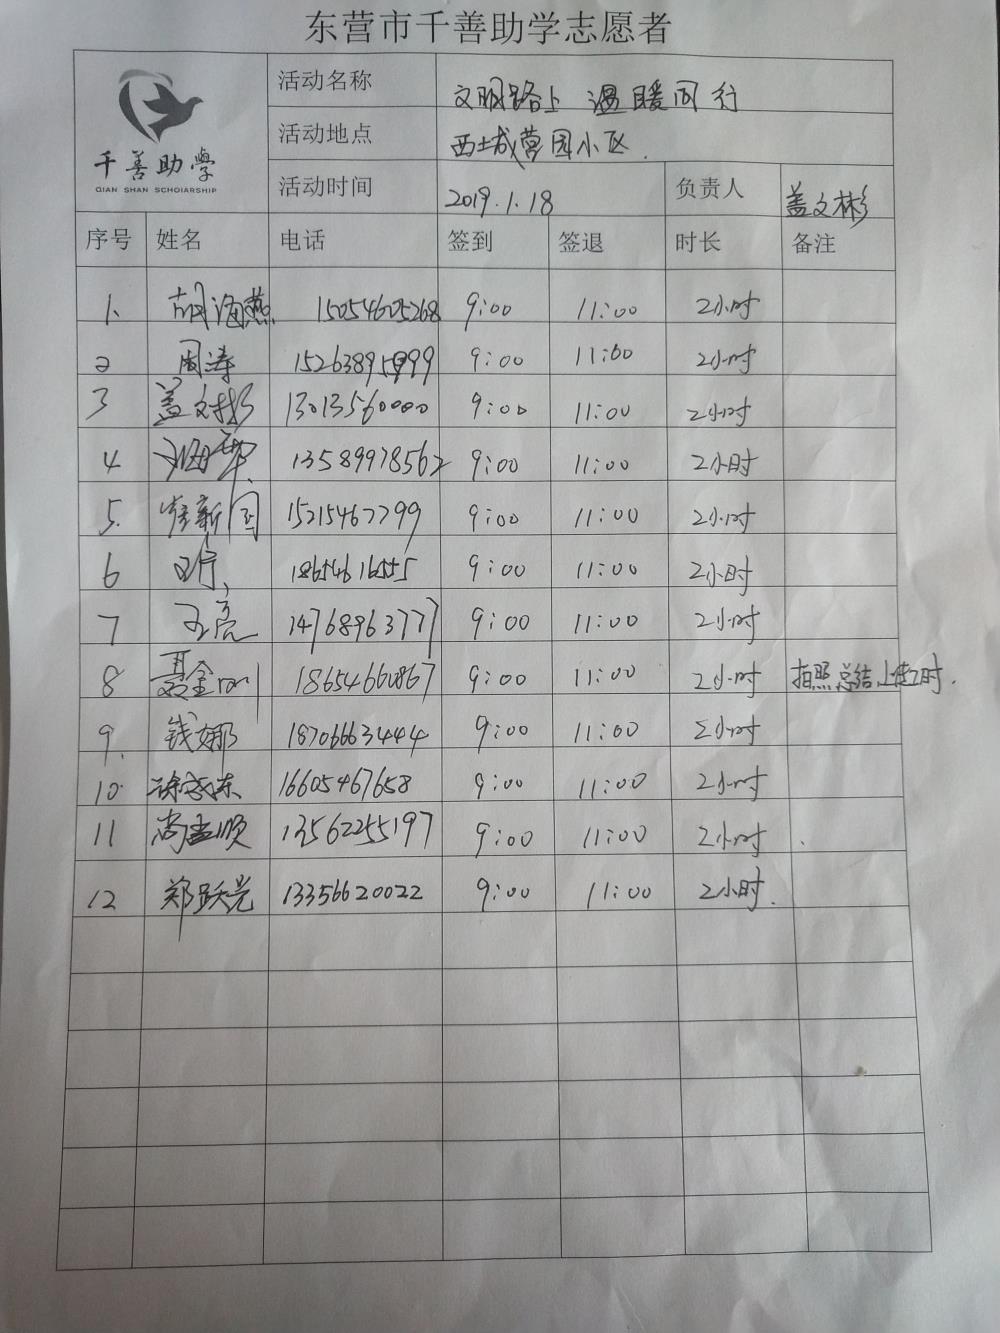 东营市千善助学志愿者
千善助學
QIAN SHAN SCHOlARSHIP
活动名称 文明路上 温暖同行
活动地点 西城营园小区.
活动时间 2019.1.18 负责人 盖文彬
序号 姓名 电话 签到 签退 时长 备注
1. 胡海燕 15054605268 9:00 11:00 2小时
2 周涛 9:00 11:00 2小时
3 盖文彬 13013560000 9:00 11:00 2小时
4 13589978562 9:00 11:00 2小时
5. 15215467799 9:00 11:00 2小时
6 18654616555 9:00 11:00 2小时
7 王亮 14768963777 9:00 11:00 2小时
8 聂金刚 18654660867 9:00 11:00 2小时 拍照总结上传2时.
9. 钱娜 18706663444 9:00 11:00 2小时
10. 徐成东 16605467658 9:00 11:00 2小时
11 尚孟顺 13562255197 9:00 11:00 2小时
12 郑跃光 13356620022 9:00 11:00 2小时.